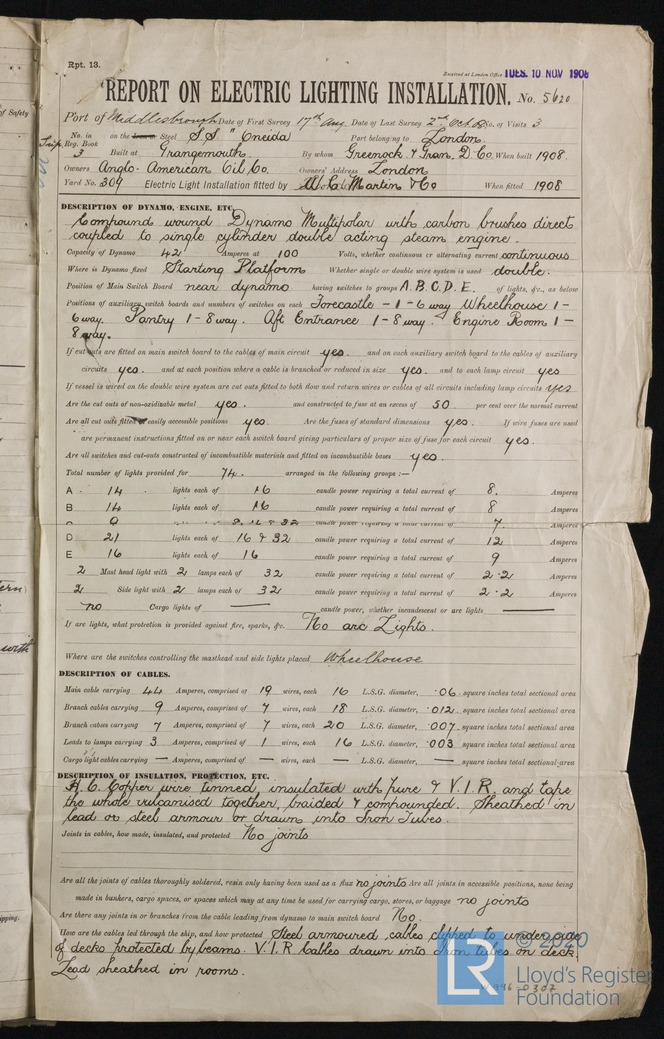 of Safety
Rpt. 13.
Received at London Office TUES. 10 NOV 1908
REPORT ON ELECTRIC LIGHTING INSTALLATION. No. 5620
Port of Middlesbrough Date of First Survey 17th Aug. Date of Last Survey 2nd Oct No. of Visits 3
No. in Reg. Book on the Iron or Steel S.S "Oneida Port belonging to London
3 Built at Grangemouth By whom Greenock & Gran. D. Co. When built 1908.
Owners Anglo-American Oil Co. Owners' Address London
Yard No. 309 Electric Light Installation fitted by W. C. Martin & Co When fitted 1908
DESCRIPTION OF DYNAMO, ENGINE, ETC.
Compound wound Dynamo Multipolar with carbon brushes direct
coupled to single cylinder double acting steam engine.
Capacity of Dynamo 42 Amperes at 100 Volts, whether continuous or alternating current continuous
Where is Dynamo fixed Starting Platform Whether single or double wire system is used double.
Position of Main Switch Board near dynamo having switches to groups A. B. C. D. E. of lights, &c., as below
Positions of auxiliary switch boards and numbers of switches on each Forecastle - 1 - 6 way Wheelhouse 1 -
6 way. Pantry 1 - 8 way. Aft Entrance 1 - 8 way. Engine Room 1 -
8 way.
If cut outs are fitted on main switch board to the cables of main circuit yes. and on each auxiliary switch board to the cables of auxiliary
circuits yes. and at each position where a cable is branched or reduced in size yes. and to each lamp circuit yes
If vessel is wired on the double wire system are cut outs fitted to both flow and return wires or cables of all circuits including lamp circuits yes
Are the cut outs of non-oxidizable metal yes. and constructed to fuse at an excess of 50 per cent over the normal current
Are all cut outs fitted in easily accessible positions yes. Are the fuses of standard dimensions yes. If wire fuses are used
are permanent instructions fitted on or near each switch board giving particulars of proper size of fuse for each circuit yes.
Are all switches and cut-outs constructed of incombustible materials and fitted on incombustible bases yes.
Total number of lights provided for 74. arranged in the following groups :—
A 14 lights each of 16 candle power requiring a total current of 8. Amperes
B 14 lights each of 16 candle power requiring a total current of 8 Amperes
9 8. 16 & 32 candle power requiring a total current of 7. Amperes
D 21 lights each of 16 & 32 candle power requiring a total current of 12 Amperes
E 16 lights each of 16 candle power requiring a total current of 9 Amperes
2 Mast head light with 2 lamps each of 32 candle power requiring a total current of 2.2 Amperes
2 Side light with 2 lamps each of 32 candle power requiring a total current of 2.2 Amperes
no Cargo lights of — candle power, whether incandescent or arc lights —
If arc lights, what protection is provided against fire, sparks, &c. No arc Lights.
Where are the switches controlling the masthead and side lights placed Wheelhouse
DESCRIPTION OF CABLES.
Main cable carrying 44 Amperes, comprised of 19 wires, each 16 L.S.G. diameter, .06 square inches total sectional area
Branch cables carrying 9 Amperes, comprised of 7 wires, each 18 L.S.G. diameter, .012 square inches total sectional area
Branch cables carrying 7 Amperes, comprised of 7 wires, each 20 L.S.G. diameter, .007 square inches total sectional area
Leads to lamps carrying 3 Amperes, comprised of 1 wires, each 16 L.S.G. diameter, .003 square inches total sectional area
Cargo light cables carrying — Amperes, comprised of — wires, each — L.S.G. diameter, — square inches total sectional area
DESCRIPTION OF INSULATION, PROTECTION, ETC.
H. C. Copper wire tinned, insulated with pure & V.I.R. and tape
the whole vulcanised together, braided & compounded. Sheathed in
lead or steel armour or drawn into Iron Tubes.
Joints in cables, how made, insulated, and protected No joints
Are all the joints of cables thoroughly soldered, resin only having been used as a flux no joints Are all joints in accessible positions, none being
made in bunkers, cargo spaces, or spaces which may at any time be used for carrying cargo, stores, or baggage no joints
Are there any joints in or branches from the cable leading from dynamo to main switch board No.
How are the cables led through the ship, and how protected Steel armoured cables clipped to underside
of decks protected by beams. V.I.R Cables drawn into Iron tubes on deck.
Lead sheathed in rooms.
© 2020
LR Lloyd's Register
Foundation